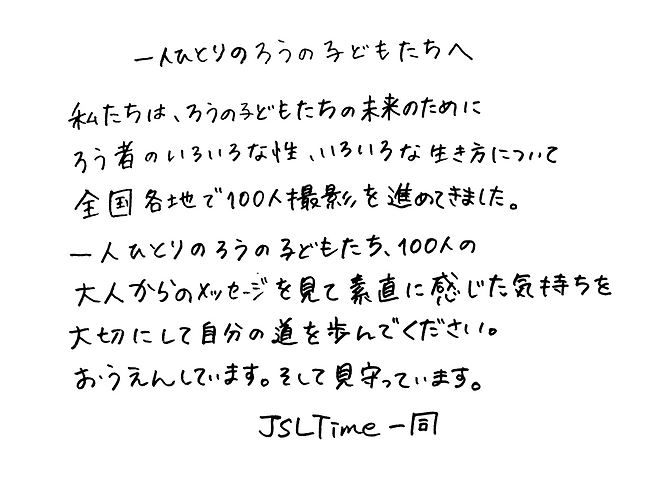 一人ひとりのろうの子どもたちへ
私たちは、ろうの子どもたちの未来のために
ろう者のいろいろな性、いろいろな生き方について
全国各地で100人撮影を進めてきました。
一人ひとりのろうの子どもたち、100人の
大人からのメッセージを見て素直に感じた気持ちを
大切にして自分の道を歩んでください。
おうえんしています。そして見守っています。
JSLTime一同